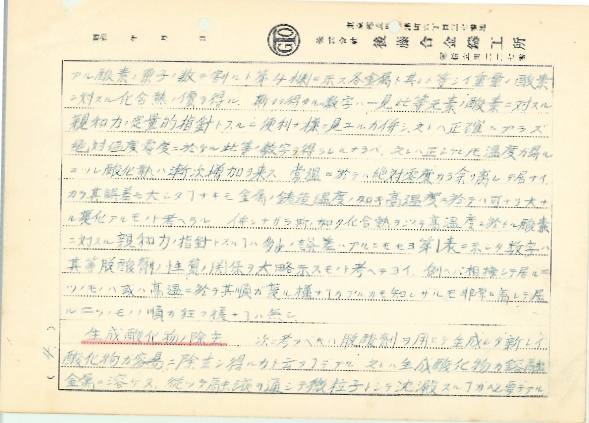 昭和 年 月 日
株式会社 後藤合金鑄工所
アル酸素ノ原子ノ数デ割ルト第4欄ニ示ス各金属ト其レト等シイ重量ノ酸素
ニ対スル化合熱ノ價ヲ得ル、斯クテ得タル数字ハ一見此等元素ノ酸素ニ対スル
親和力ノ定量的指針トスルニ便利ナ様ニ見エルガ併シ、之レハ正確ニアラズ
絶対温度零度ニ於ケル此等ノ数字ヲ得ラレルナラバ、之レハ正シイガ温度ガ昇ル
ニツレ酸化熱ハ漸次増加ヲ来ス、常温ニ於テハ絶対零度カラ余リ離レテ居ナイ
カラ其誤差ハ大シタコトナキモ金属ノ鋳造温度ノ如キ高温度ニ於テハ可ナリ大ナ
ル変化アルモノト考ヘラル、併シナガラ斯ノ如ク化合熱ヲ以テ高温度ニ於ケル酸素
ニ対スル親和力ノ指針トスルコトハ多少ノ誤差ハアルニモセヨ第1表ニ示シタ数字ハ
其等脱酸剤ノ性質ノ関係ヲ大略示スモノト考ヘテヨイ、例ヘバ相接シテ居ル二
ツノモノハ或ハ高温ニ於テ其順ガ変ル様ナコトガアルカモ知レザルモ非常ニ離レテ居
ル二ツノモノノ順ガ狂フ様ナコトハ無シ
生成酸化物ノ除去 次ニ考フベキハ脱酸剤ヲ用ヒテ生成シタ新シイ
酸化物ガ容易ニ除去シ得ルカト云フコトデアル 之レハ生成酸化物ガ鎔融
金属ニ溶ケズ、従ツテ融液ヲ通シテ微粒子トシテ沈澱スルコトガ必要デアル